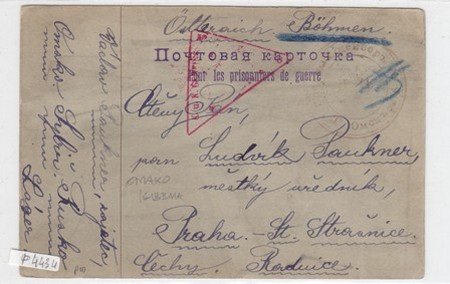 Österaich Böhmen.
Почтовая карточка
Pour les prisonniers de guerre
Ctěný Pan,
pan Ludvík Paukner,
městký úředník,
Praha.-St. Strašnice.
Čechy. Radnice.
Václav Paukner, zajatec,
Omsko. Sibiř Ruská
Láger
OMAKO
/SIBERIA
P4434